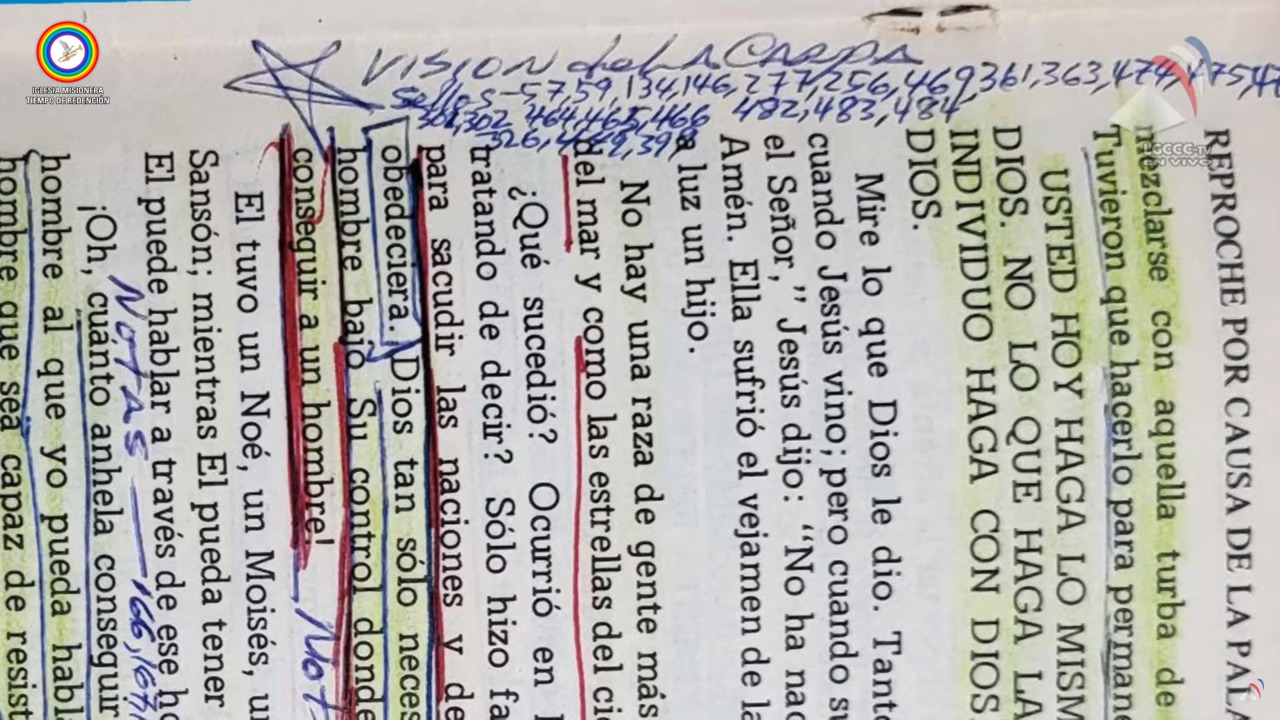 IGLESIA MISIONERA
TIEMPO DE REDENCIÓN
VISION de LA CARPA
Sellos-57,59,134,146,277,256,469,361,363,474,475,47
301,302 464,465,466 482,483,484
REPROCHE POR CAUSA DE LA PALA
mezclarse con aquella turba de
Tuvieron que hacerlo para perman
USTED HOY HAGA LO MISM
DIOS. NO LO QUE HAGA LA
INDIVIDUO HAGA CON DIOS.
DIOS.
Mire lo que Dios le dio. Tanto
cuando Jesús vino; pero cuando su
el Señor,” Jesús dijo: “No ha nac
Amén. Ella sufrió el vejamen de la
a luz un hijo.
No hay una raza de gente más
del mar y como las estrellas del cie
¿Qué sucedió? Ocurrió en l
tratando de decir? Sólo hizo fa
para sacudir las naciones y de
obedeciera. Dios tan sólo neces
hombre bajo Su control donde
conseguir a un hombre!
Not
El tuvo un Noé, un Moisés, u
Sansón; mientras El pueda tener
El puede hablar a través de ese ho
¡Oh, cuánto anhela conseguir
NOTAS — 166,167,
hombre al que yo pueda habla
hombre que sea capaz de resist